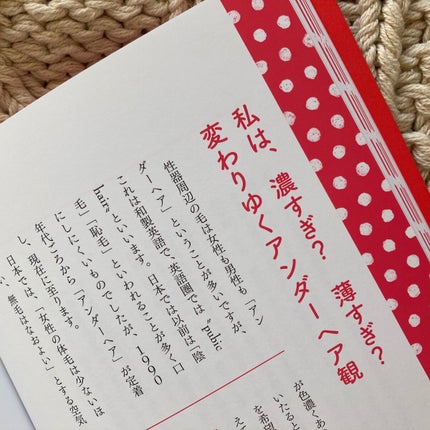 私は、濃すぎ？ 薄すぎ？
変わりゆくアンダーヘア観
性器周辺の毛は女性も男性も「アン
ダーヘア」ということが多いですが、
これは和製英語で、英語圏では〝pubic
hair〟といいます。日本では以前は「陰
毛」「恥毛」といわれることが多く口
にしにくいものでしたが、1990
年代ごろから「アンダーヘア」が定着
し、現在に至ります。
日本では、「女性の体毛は少ないほ
無毛はなおよい」とする空気
が色濃くあ
いたると
を希望
えて